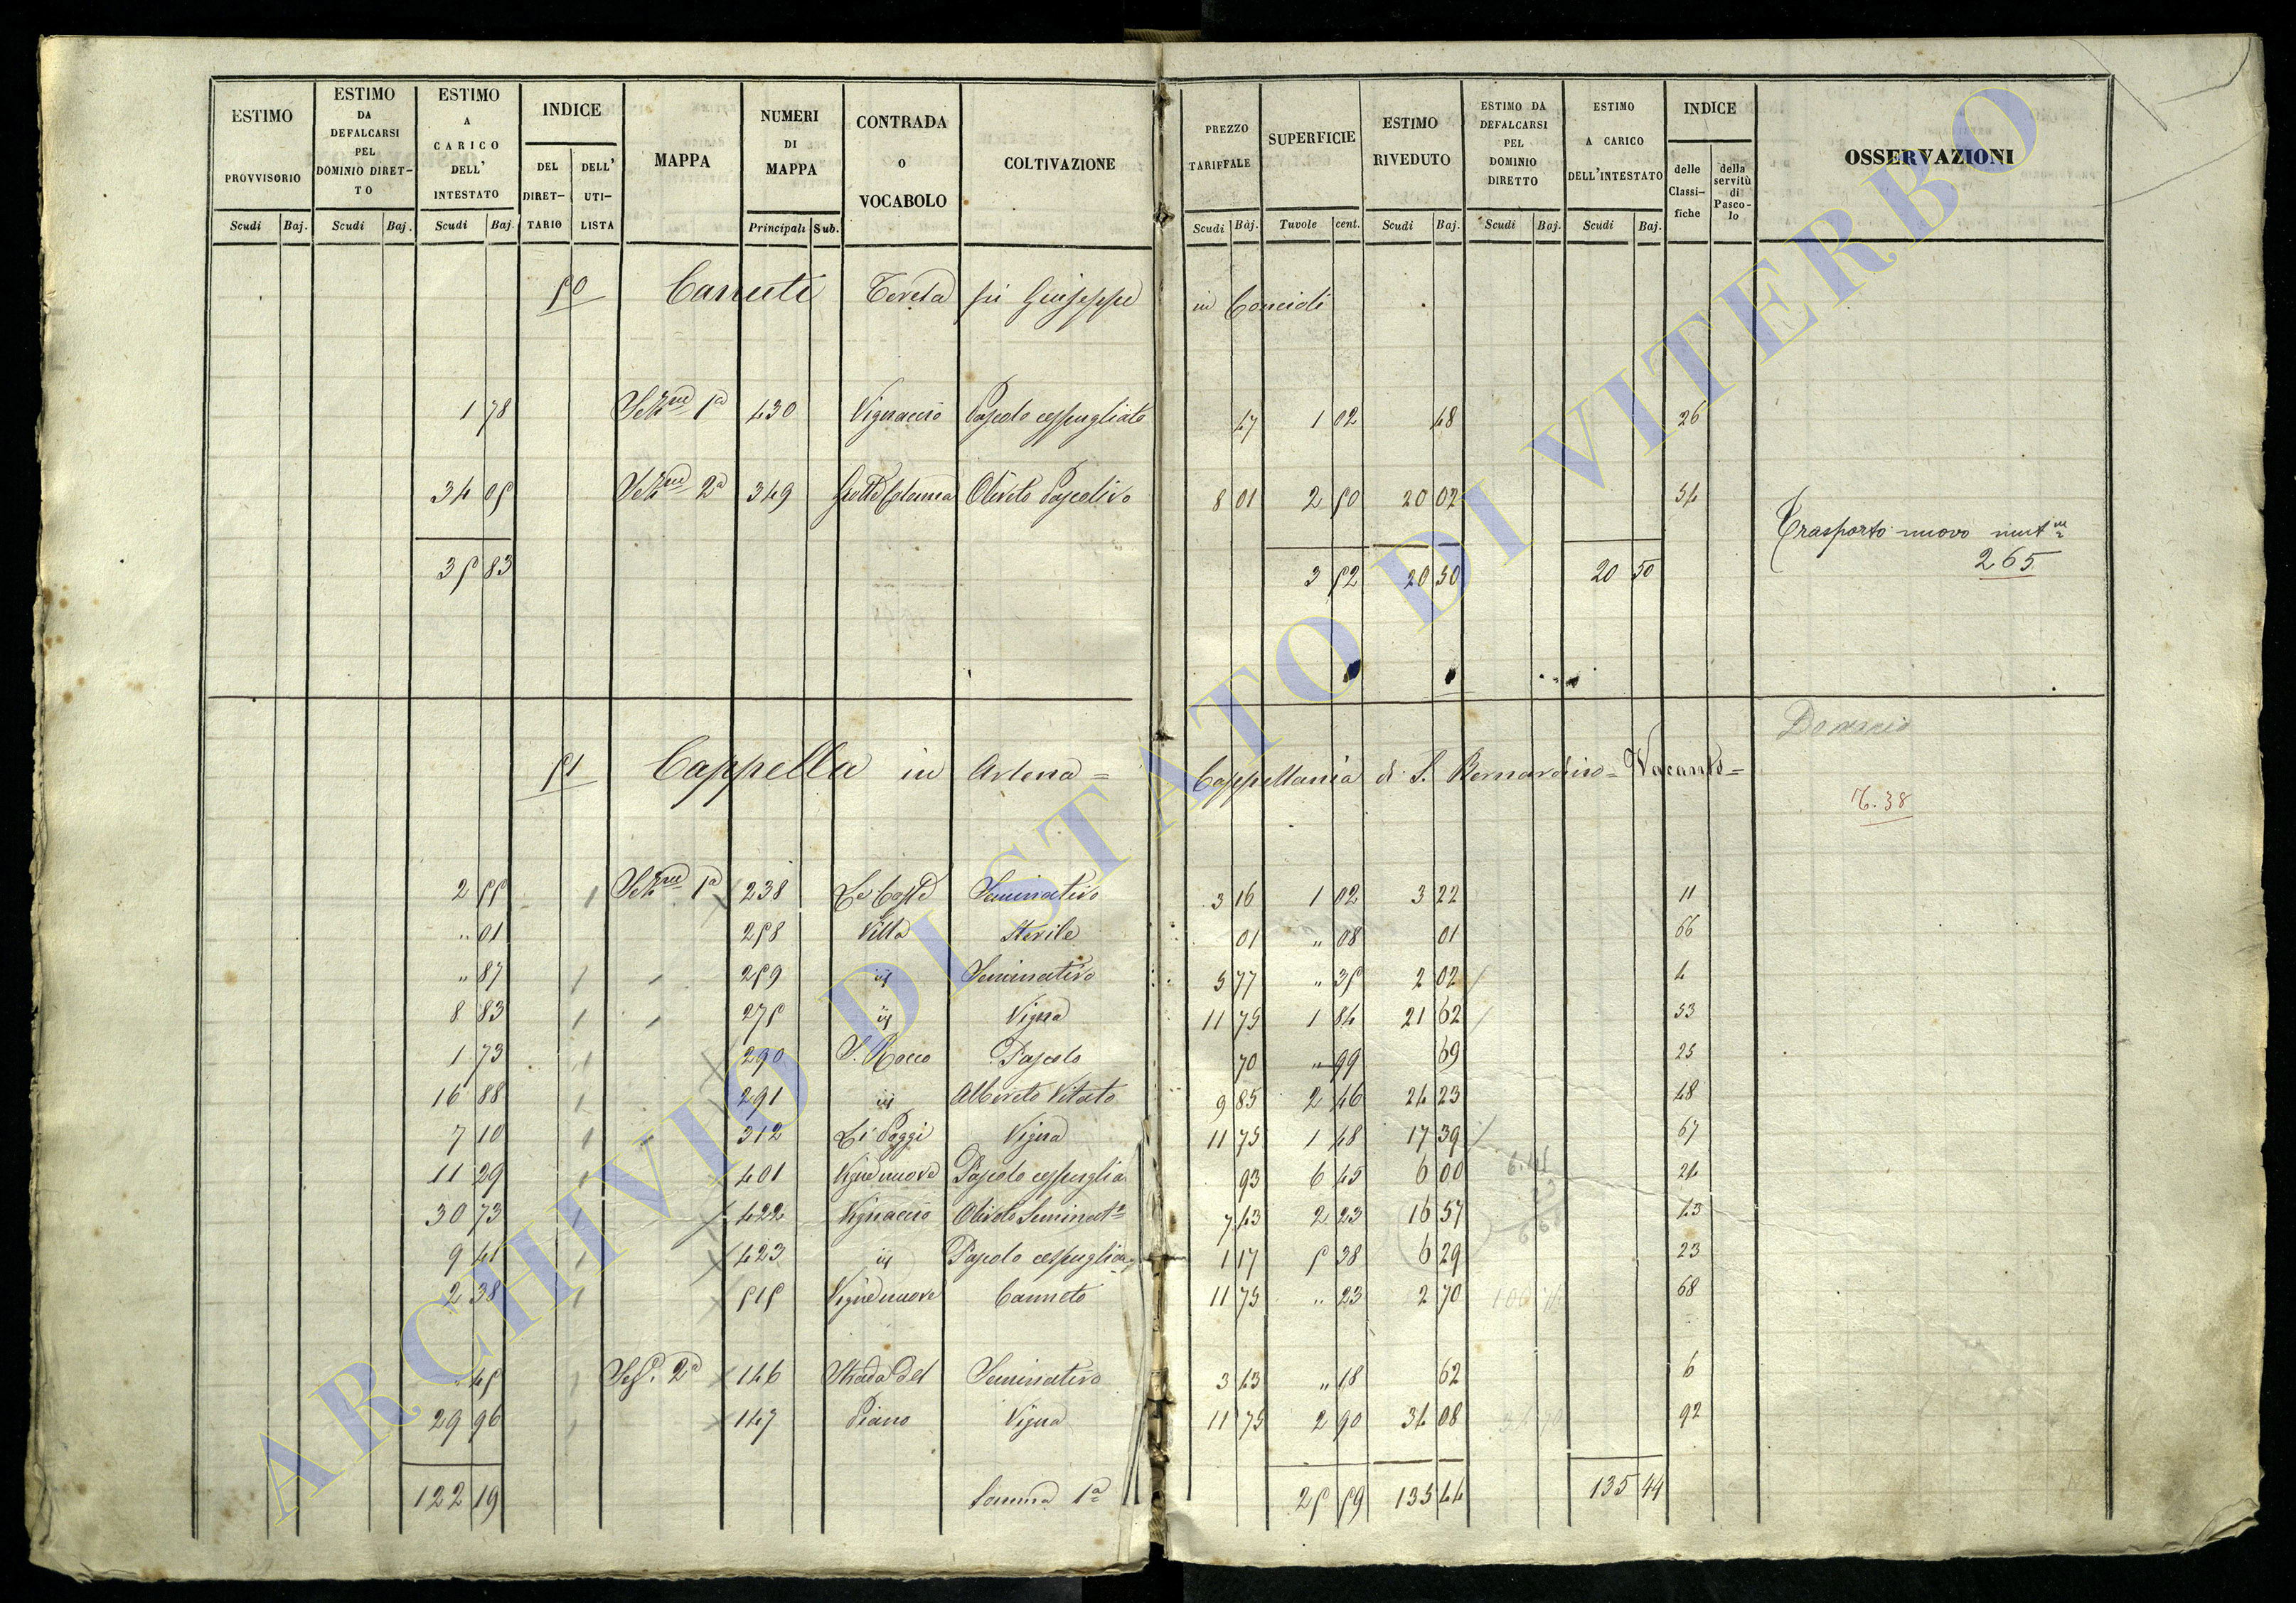 ESTIMO PROVVISORIO Scudi Baj.
ESTIMO DA DEFALCARSI PEL DOMINIO DIRET-TO Scudi Baj.
ESTIMO A CARICO DELL' INTESTATO Scudi Baj.
INDICE DEL DIRET-TARIO DELL' UTI-LISTA
MAPPA
NUMERI DI MAPPA Principali Sub.
CONTRADA o VOCABOLO
COLTIVAZIONE
PREZZO TARIFFALE Scudi Baj.
SUPERFICIE Tavole cent.
ESTIMO RIVEDUTO Scudi Baj.
ESTIMO DA DEFALCARSI PEL DOMINIO DIRETTO Scudi Baj.
ESTIMO A CARICO DELL'INTESTATO Scudi Baj.
INDICE delle Classi-fiche della servitù di Pasco-lo
OSSERVAZIONI
50 Canuti Teresa fù Giuseppe in Concioli
1 78 Sezne 1a 430 Vignaccio Pascolo cespugliato 47 1 02 48 26
34 05 Sezne 2a 349 Grotta Colonna Oliveto Pascolivo 8 01 2 50 20 02 54
Trasporto nuovo
35 83 3 52 20 50 20 50 265
51 Cappella in Artena = Cappellania di S. Bernardino = Vacante =
38
2 55 1 Sezne 1a 238 Le Coste Seminativo 3 16 1 02 3 22 11
" 01 258 Villa Sterile 01 " 08 01 66
" 87 1 259 id Seminativo 5 77 " 35 2 02 4
8 83 1 275 id Vigna 11 75 1 84 21 62 53
1 73 1 290 S. Rocco Pascolo 70 " 99 69 25
16 88 1 291 id Albereto Vitato 9 85 2 46 24 23 48
7 10 1 312 Li Poggi Vigna 11 75 1 48 17 39 67
11 29 1 401 Vigne nuove Pascolo cespuglia 93 6 45 6 00 24
30 73 1 422 Vignaccio Oliveto Seminato 7 43 2 23 16 57 43
9 41 1 423 id Pascolo cespuglia 1 17 5 38 6 29 23
2 38 1 515 Vigne nuove Canneto 11 75 " 23 2 70 68
" 45 1 Sez. 2a 146 Strada del Seminativo 3 43 " 18 62 6
29 96 1 147 Piano Vigna 11 75 2 90 34 08 92
122 19 Somma 1a 25 59 135 44 135 44
ARCHIVIO DI STATO DI VITERBO